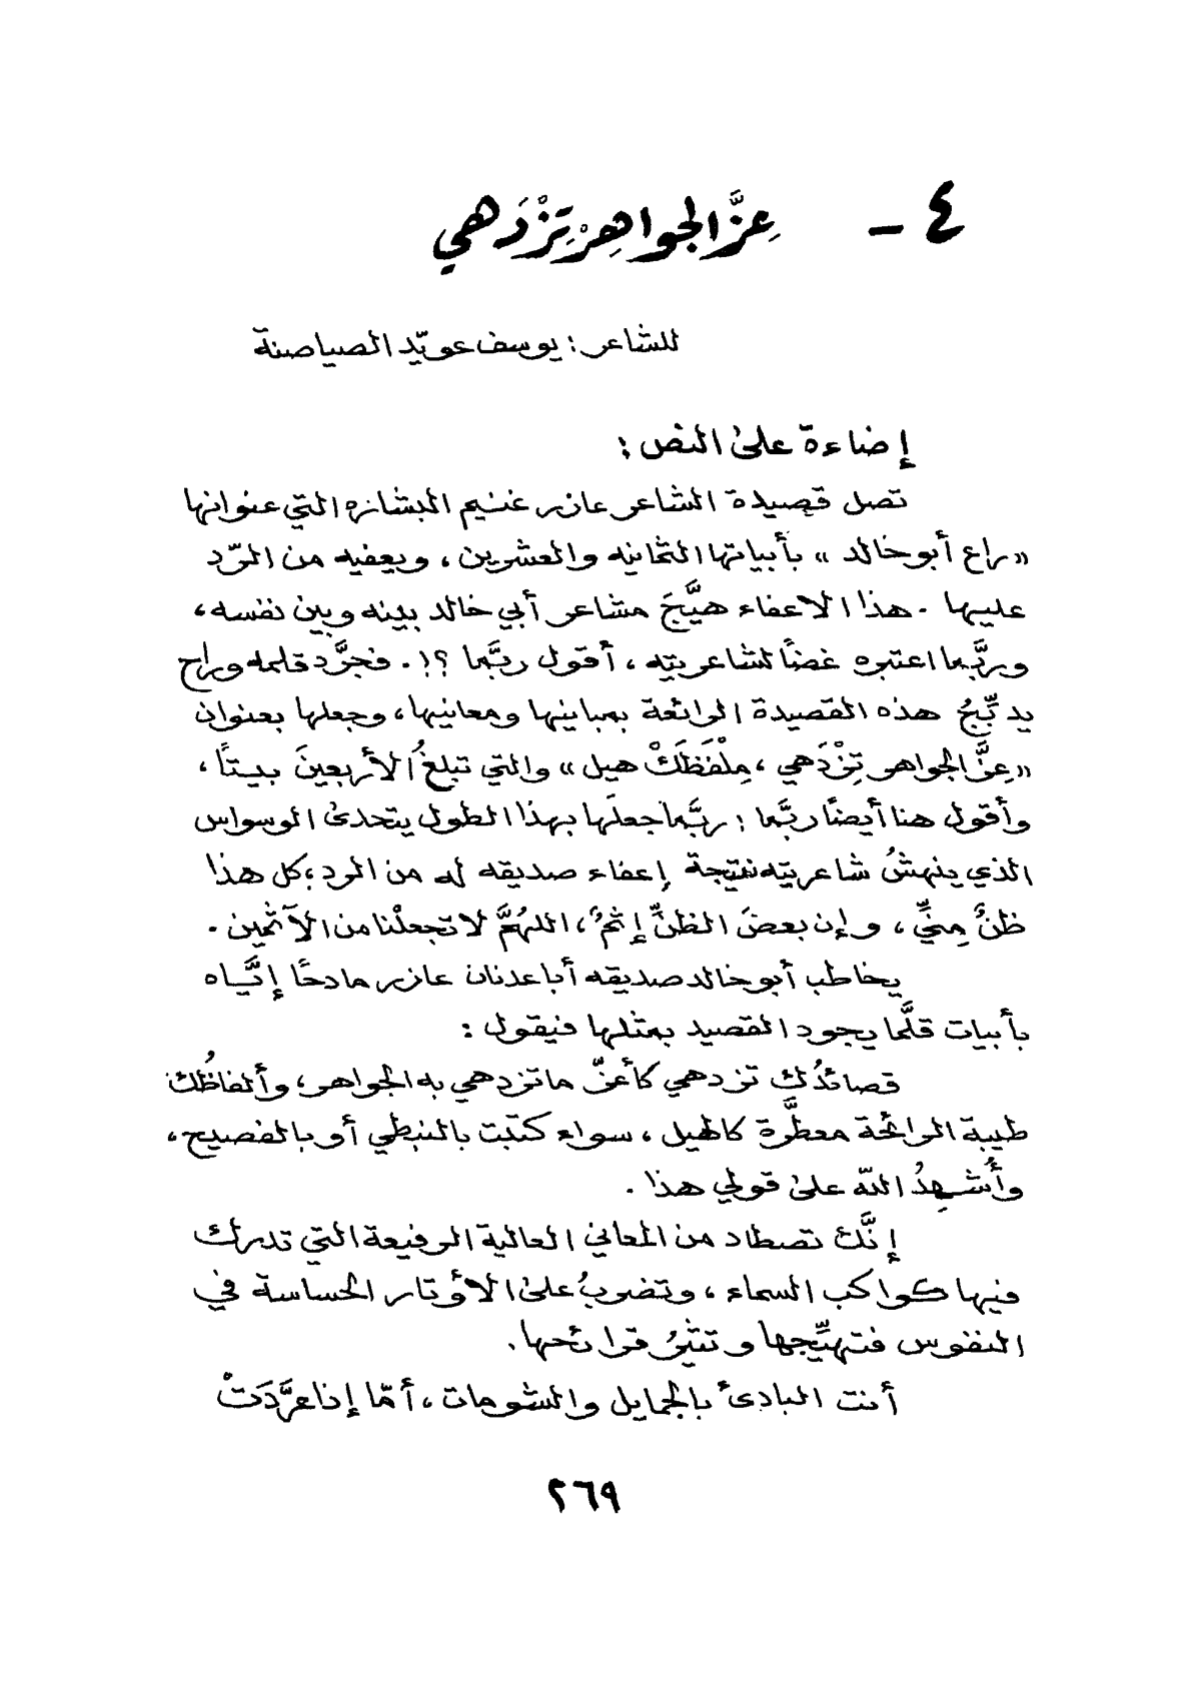 ٤ - عِزَّ الجواهِرْ تِزْدَهي
للشاعر : يوسف عويّد الصياصنة
إضاءة على النص :
تصل قصيدة الشاعر عازر غنيم البشازه التي عنوانها
« راع أبو خالد » بأبياتها الثمانيه والعشرين ، ويعفيه من الرّد
عليها . هذا الاعفاء هيَّجَ مشاعر أبي خالد بينه وبين نفسه ،
وربَّما اعتبره غضًا لشاعريته ، أقول ربَّما ؟! . فجرَّد قلمه وراح
يدبِّجُ هذه القصيدة الرائعة بمبانيها ومعانيها ، وجعلها بعنوان
« عِزَّ الجواهر تِزْدَهي ، مِلْفَظَكْ هيل » والتي تبلغُ الأربعينَ بيتًا ،
وأقول هنا أيضًا ربَّما : ربَّما جعلَها بهذا الطول يتحدى الوسواس
الذي ينهشُ شاعريته نتيجة إعفاء صديقه له من الرد ؛ كل هذا
ظنٌ مِنّي ، وإن بعضَ الظنِّ إثمٌ ، اللهُمَّ لا تجعلْنا من الآثمين .
يخاطب أبو خالد صديقه أبا عدنان عازر مادحًا إيَّاه
بأبيات قلَّما يجود القصيد بمثلها فيقول :
قصائدُك تزدهي كأعزّ ما تزدهي به الجواهر ، وألفاظُك
طيبة الرائحة معطَّرة كالهيل ، سواء كتبت بالنبطي أو بالفصيح ،
وأُشهِدُ الله على قولي هذا .
إنَّك تصطاد من المعاني العالية الرفيعة التي تدرك
فيها كواكب السماء ، وتضربُ على الأوتار الحساسة في
النفوس فتهيِّجها وتثيرُ قرائحها .
أنت البادئ بالجمايل والشومات ، أمّا إذا عرَّدَتْ
٢٦٩